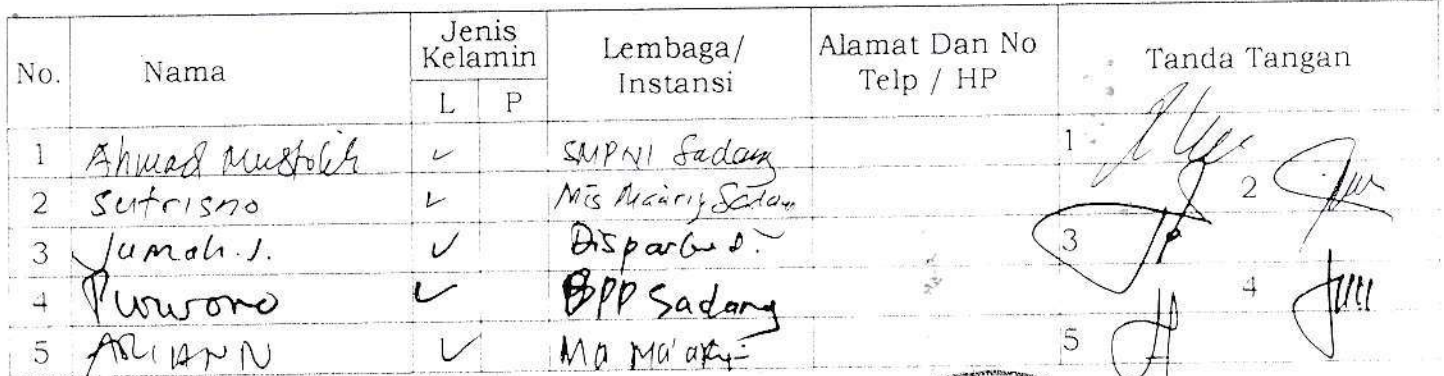 No. Nama Jenis Kelamin Lembaga/ Instansi Alamat Dan No Telp / HP Tanda Tangan
L P
1 Ahmad Mustolih ✓ SMPN1 Sadang 1
2 Sutrisno ✓ Mis Maarif Sadang 2
3 Jumah. S. ✓ Disparbud. 3
4 Purwono ✓ BPP Sadang 4
5 ✓ MA Ma'arif 5